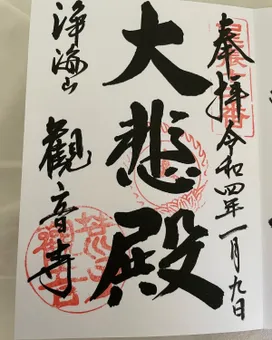 奉拝 令和四年一月九日
大悲殿
浄海山
觀音寺